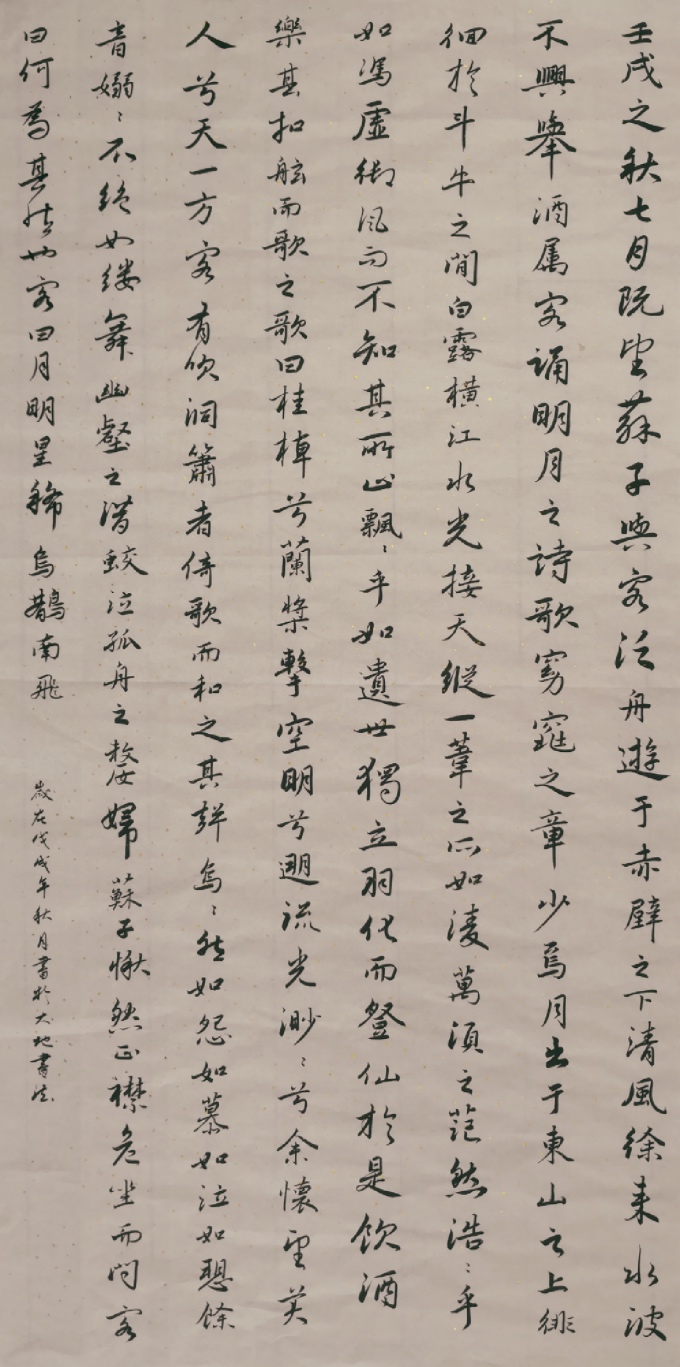 壬戌之秋七月既望蘇子與客泛舟遊于赤壁之下清風徐来水波
不興舉酒属客誦明月之詩歌窈窕之章少焉月出于東山之上徘
徊於斗牛之間白露横江水光接天縱一葦之所如淩萬頃之茫然浩〻乎
如馮虚御風而不知其所止飄〻乎如遺世獨立羽化而登仙於是飲酒
樂甚扣舷而歌之歌曰桂棹兮蘭槳擊空明兮遡流光渺〻兮余懷望美
人兮天一方客有吹洞簫者倚歌而和之其聲烏〻然如怨如慕如泣如愬餘
音嫋〻不絶如縷舞幽壑之潜蛟泣孤舟之嫠婦蘇子愀然正襟危坐而問客
曰何為其然也客曰月明星稀烏鵲南飛
歲在戊戌年秋月書於大地書法